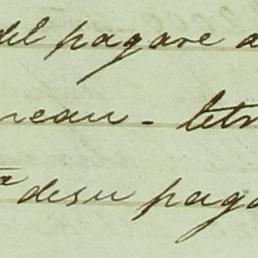 del pagare a
neau - letr
desu paga